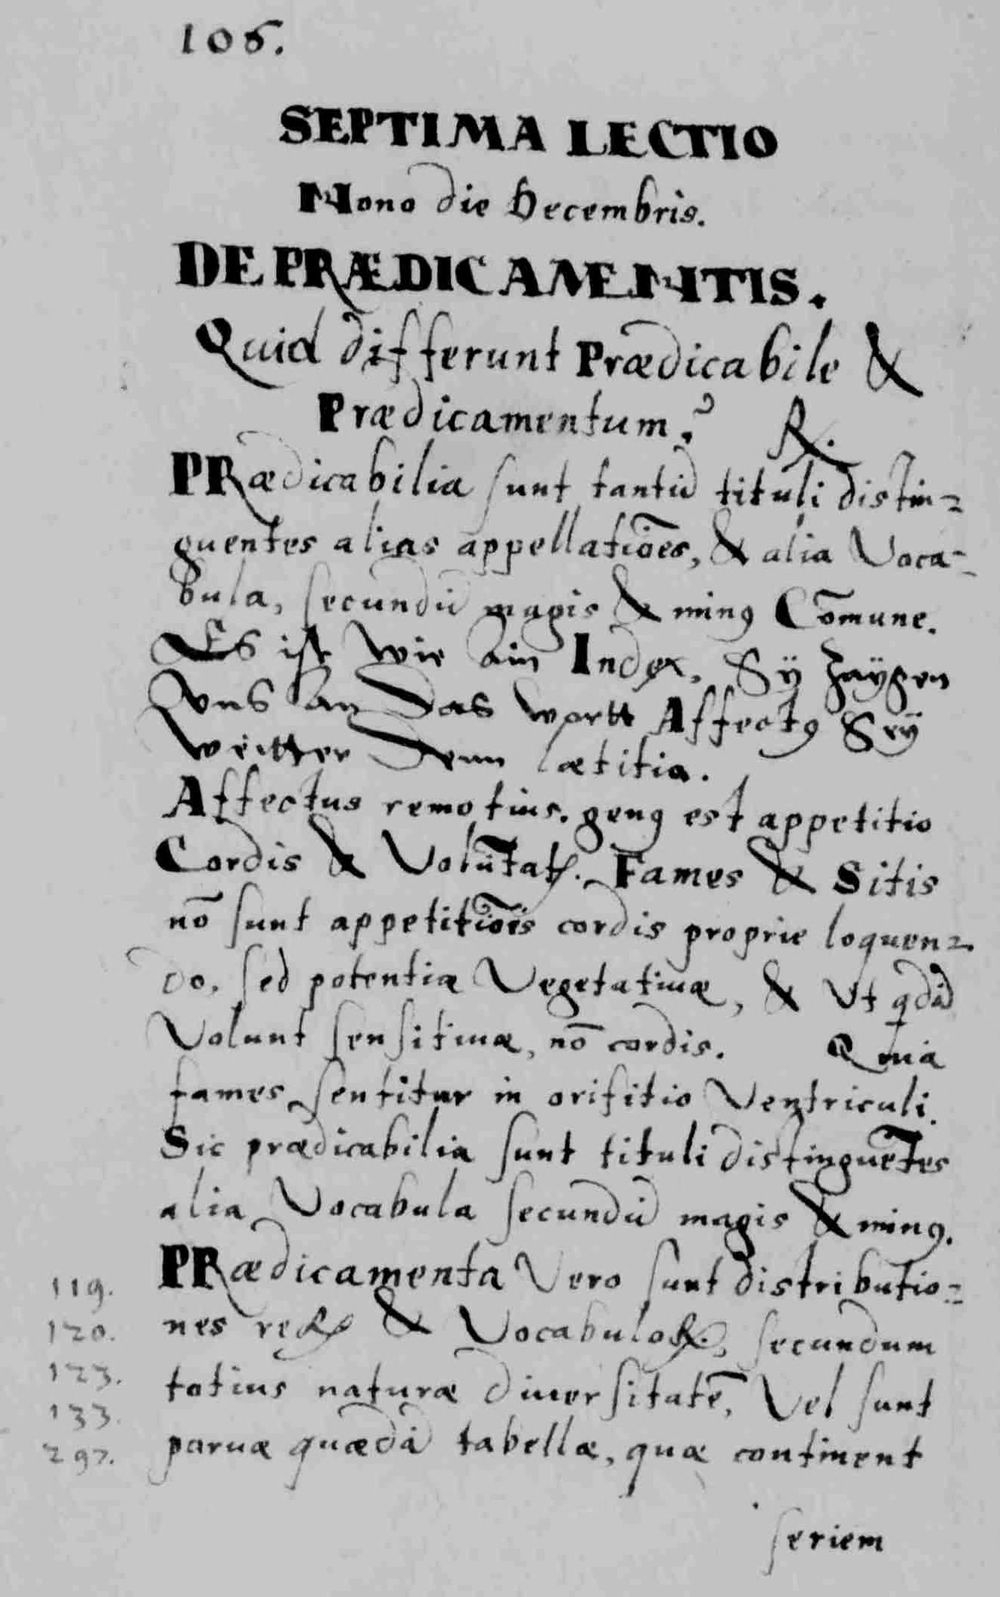 106.
SEPTIMA LECTIO
Nono die Decembris.
DE PRÆDICAMENTIS.
Quid differunt Prædicabile &
Prædicamentum? ℞.
PRædicabilia sunt tantũ tituli distin=
guentes alias appellatiões, & alia Voca=
bula, secundũ magis & minꝰ Cõmune.
Es ist wie ain Index, Sÿ zaÿgen
vns an das wortt Affectꝰ Seÿ
weitter denn lætitia.
Affectus remotius. genꝰ est appetitio
Cordis & Volũtatꝭ. Fames & Sitis
nõ sunt appetitiões cordis proprie loquen=
do, sed potentiæ Vegetatiuæ, & Vt qdã
Volunt sensitiuæ, nõ cordis. Quia
fames sentitur in orifitio Ventriculi.
Sic prædicabilia sunt tituli distinguẽtes
alia Vocabula secundũ magis & minꝰ.
PRædicamenta Vero sunt distributio=
nes reꝝ & Vocabuloꝝ, secundum
totius naturæ diuersitatẽ, Vel sunt
paruæ quædã tabellæ, quæ continent
seriem
119.
120.
123.
133.
297.